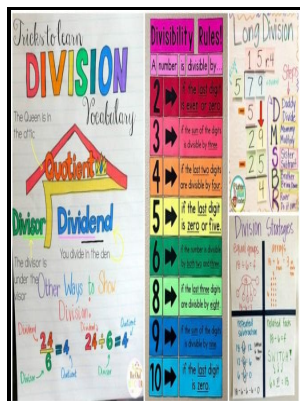 Tricks to learn
DIVISION
Vocabulary
The Queen is in
the attic
Quotient
Divisor
Dividend
The divisor is
under the
visor
You divide in the den
Other Ways to Show
Division:
Dividend
24
6
=4
Divisor
Quotient
Dividend
24÷6=4
Quotient
Divisor
Divisibility Rules!
A number is divisible by...
2
if the last digit
is even or zero.
3
if the sum of the digits
is divisible by three.
4
if the last two digits
are divisible by four.
5
if the last digit
is zero or five.
6
if the number is divisible
by both two and three.
8
if the last three digits
are divisible by eight.
9
if the sum of the digits
is divisible by nine.
10
if the last digit
is zero.
Long Division
Steps
15 r4
5
79
5
29
25
4
D
M
S
B
R
Daddy
Divide
Mommy
Multiply
Sister
Subtract
Brother
Bring Down
Division Strategies
Equal groups
18÷6=
Repeated
Subtraction
Related facts
18÷6=